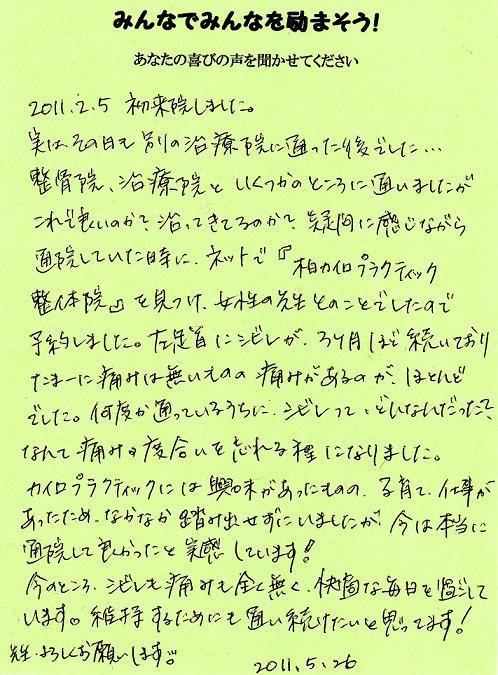 みんなでみんなを励まそう!
あなたの喜びの声を聞かせてください
2011.2.5 初来院しました。
実は、その日も別の治療院に通った後でした…
整骨院、治療院といくつかのところに通いましたが
これで良いのか?、治ってきてるのか?、疑問に感じながら
通院していた時に、ネットで『柏カイロプラクティック
整体院』を見つけ、女性の先生とのことでしたので
予約しました。左足首にシビレが、3ヶ月ほど続いており
たまーに痛みは無いものの 痛みがあるのが、ほとんど
でした。何度か通っているうちに、シビレって、どんなんだった?、
なんて痛みの度合いを忘れる程になりました。
カイロプラクティックには興味があったものの、子育て、仕事が
あったため、なかなか踏み出せずにいましたが 今は本当に
通院して良かったと実感しています!
今のところ、シビレも痛みも全く無く、快適な毎日を過ごして
います。維持するためにも通い続けたいと思ってます!
先生、よろしくお願いします。
2011.5.26